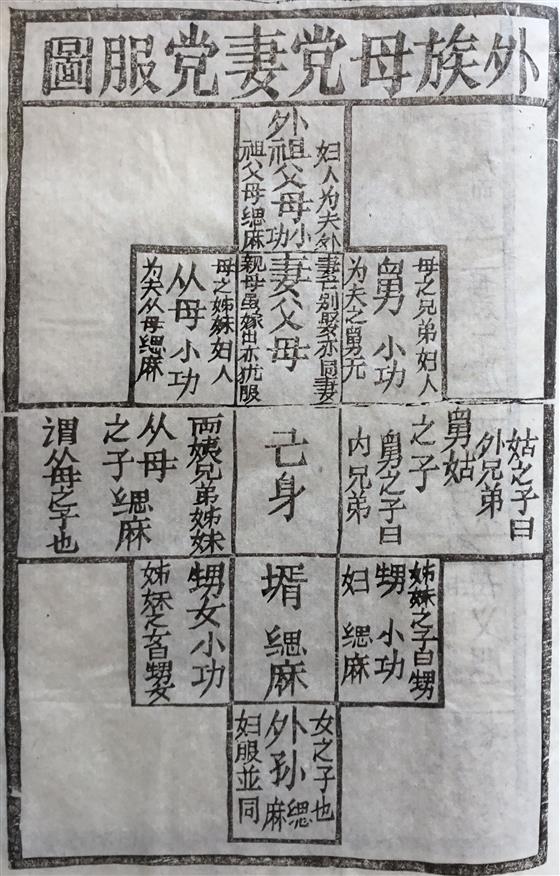 外族母党妻党服圖
妇人为夫外
外祖父母小功
祖父母缌麻
母之兄弟妇人
舅 小功
为夫之舅无
妻亡别娶亦同妻
妻父母
親母虽嫁出亦犹服
母之姊妹妇人
从母 小功
为夫从母缌麻
姑之子曰
外兄弟
舅姑
之子
舅之子曰
内兄弟
己身
両姨兄弟姊妹
从母
之子 缌麻
谓从母之子也
姊妹之子曰甥
甥 小功
妇 缌麻
壻 缌麻
甥女小功
姊妹之女曰甥女
女之子也
外孙缌麻
妇服並同